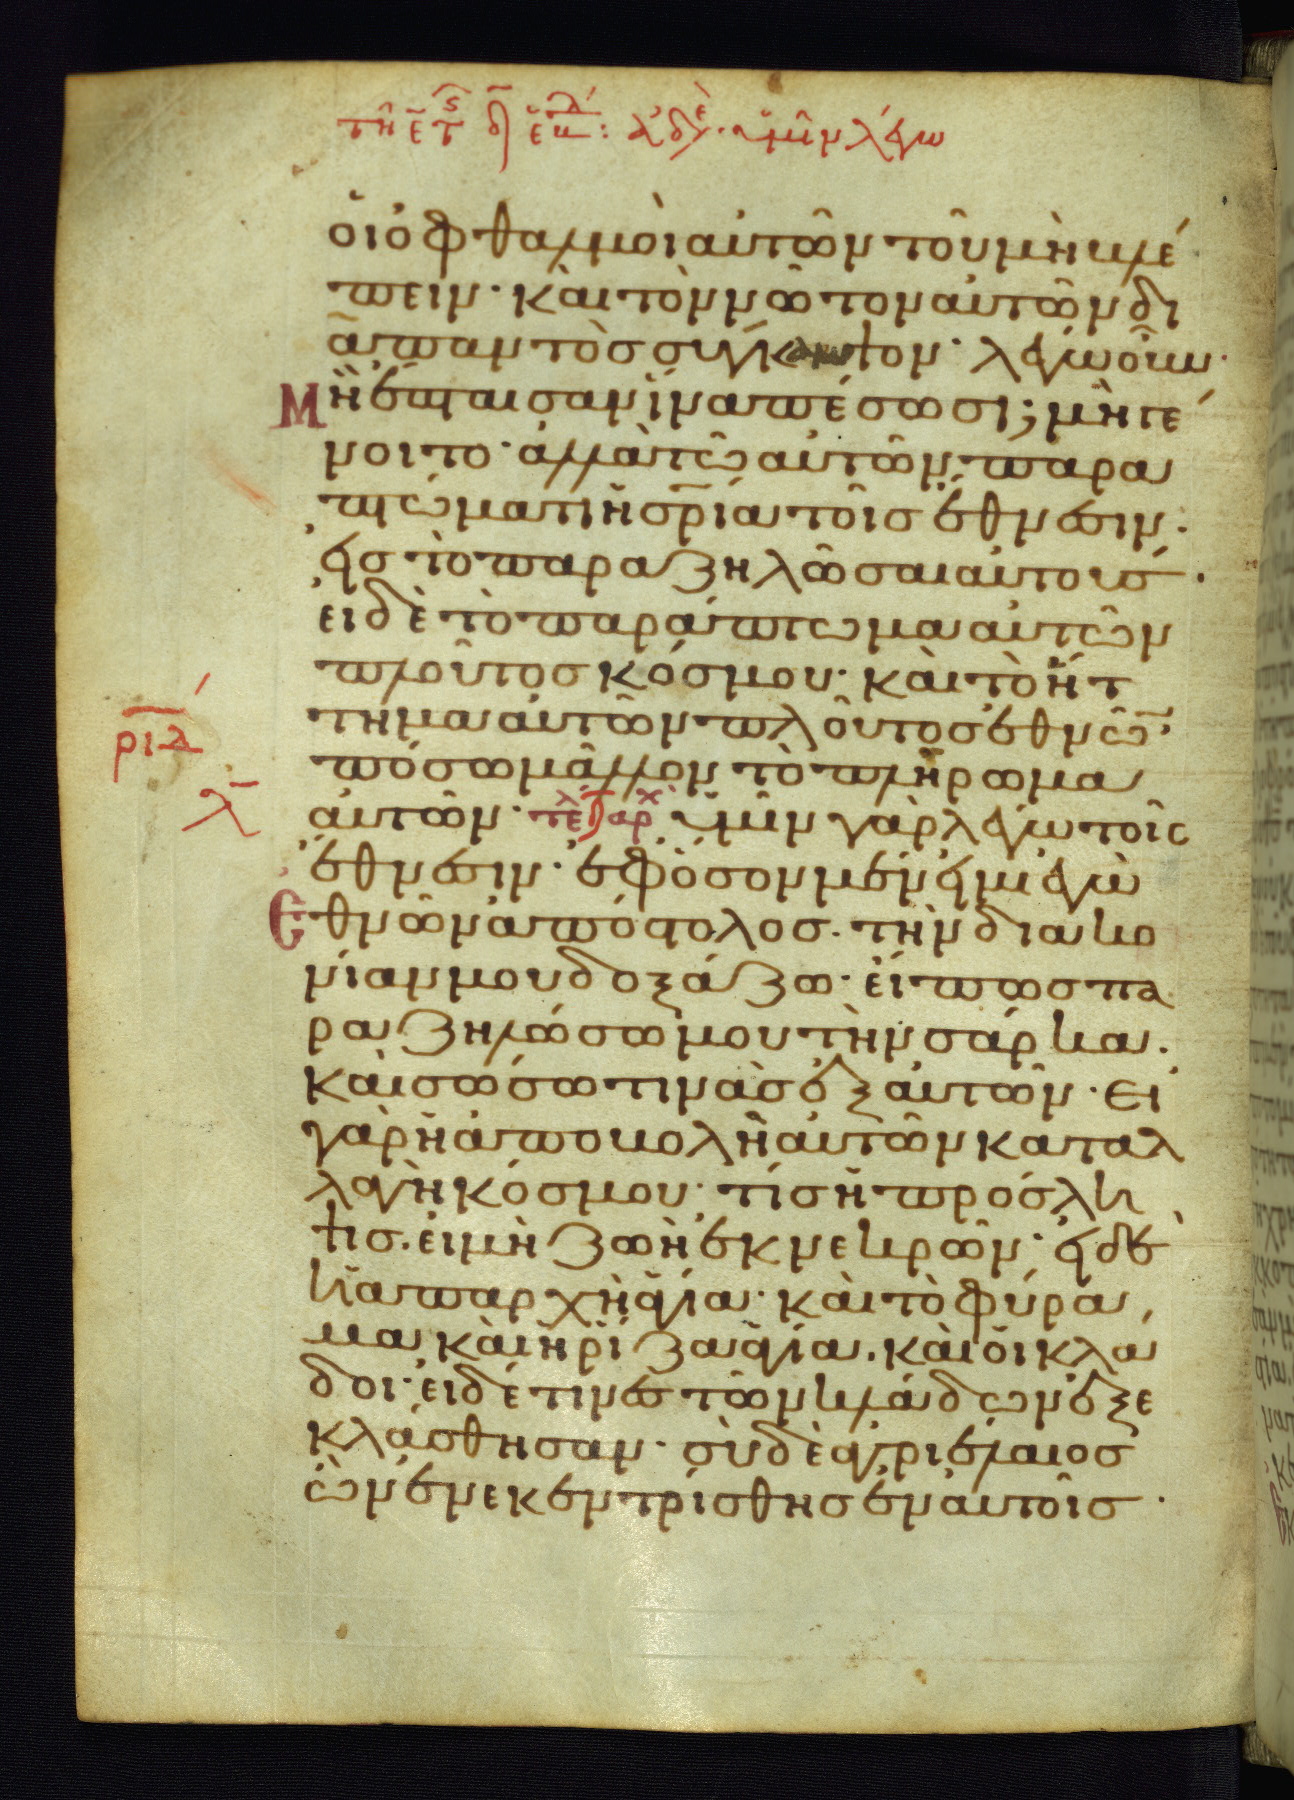 οἱ ὀφθαλμοὶ αὐτῶν τοῦ μὴ βλέ
πειν· καὶ τὸν νῶτον αὐτῶν δι
ἁπαντὸσ σύγκαμψον· λέγω οὖν·
Μὴ ἔπταισαν ἵνα πέσωσι; μὴ γέ
νοιτο· ἀλλὰ τῶ αὐτῶν παρα
πτώματι ἡ σρία τοῖσ ἔθνεσιν·
εἰσ τὸ παραζηλῶσαι αὐτούσ·
εἰ δὲ τὸ παράπτωμα αὐτῶν
πλοῦτοσ κόσμου· καὶ τὸ ἥτ
τημα αὐτῶν πλοῦτοσ ἐθνῶ·
πόσω μᾶλλον τὸ πλήρωμα
ριδ
αὐτῶν· τε αρχ ὑμῖν γὰρ λέγω τοῖσ
ἔθνεσιν· ἐφ ὅσον μέν εἰμι ἐγὼ
Ἐθνῶν ἀπόστολοσ· τὴν διακο
νίαν μου δοξάζω· εἴ πωσ πα
ραζηλώσω μου τὴν σάρκα·
καὶ σώσω τινὰσ ἐξ αὐτῶν· εἰ
γὰρ ἡ ἀποβολὴ αὐτῶν καταλ
λαγὴ κόσμου· τίσ ἡ πρόσλη
ψισ· εἰ μὴ ζωὴ ἐκ νεκρῶν· εἰ δὲ
ἡ ἀπαρχὴ ἁγία· καὶ τὸ φύρα
μα καὶ ἡ ῥίζα ἁγία· καὶ οἱ κλά
δοι· εἰ δέ τινεσ τῶν κλάδων ἐξε
κλάσθησαν· σὺ δὲ ἀγριέλαιοσ
ὢν ἐνεκεντρίσθησ ἐν αὐτοῖσ·